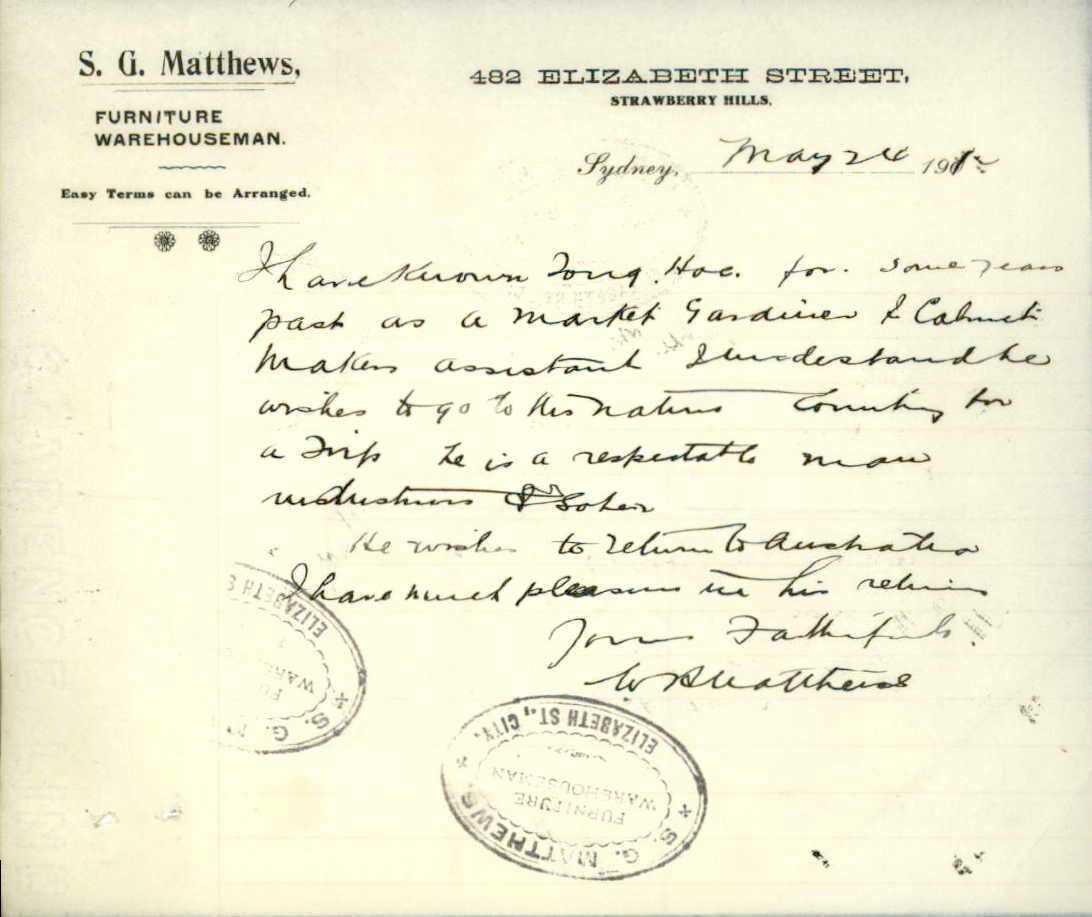 S. G. Matthews,
FURNITURE
WAREHOUSEMAN.
Easy Terms can be Arranged.
482 ELIZABETH STREET,
STRAWBERRY HILLS,
Sydney, May 24 191
I have Known Tong. Hoe. for. some years
past as a market Gardiner & Cabinet
Makers assistant I understand he
wishes to go to his native Country for
a Trip he is a respectable man
industrious & Sober
He wishes to return to Australia
I have much pleasure in his return
Yours Faithfully
W H Matthews
ELIZABETH S
FU
WARE
S. G. M
ELIZABETH ST., CITY.
FURNITURE
WAREHOUSEMAN
S. G. MATTHEWS.